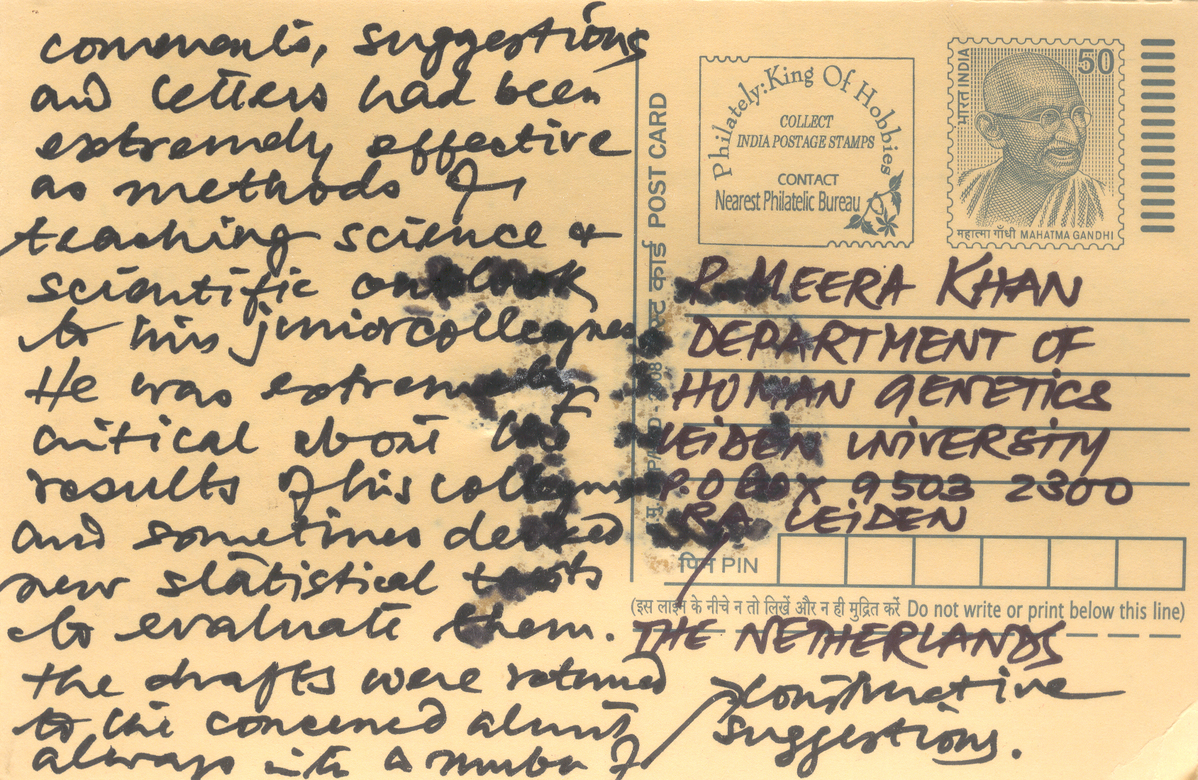 comments, suggestions
and letters had been
extremely effective
as methods of
teaching science &
scientific outlook
to his junior colleagues
He was extremely
critical about his
results of his colleagues
and sometimes devised
new statistical tests
to evaluate them.
The drafts were returned
to the concerned
always with a number of
constructive
suggestions.
POST CARD
कार्ड
Philately: King Of Hobbies
COLLECT
INDIA POSTAGE STAMPS
CONTACT
Nearest Philatelic Bureau
भारत INDIA
50
महात्मा गाँधी MAHATMA GANDHI
P. MEERA KHAN
DEPARTMENT OF
HUMAN GENETICS
LEIDEN UNIVERSITY
P.O BOX 9503 2300
RA LEIDEN
पिन PIN
(इस लाइन के नीचे न तो लिखें और न ही मुद्रित करें Do not write or print below this line)
THE NETHERLANDS